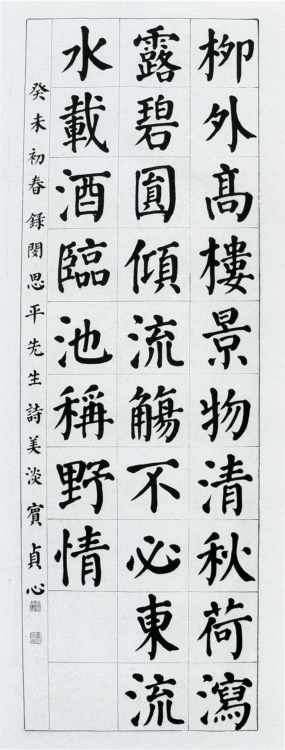 柳外髙樓景物清秋荷瀉
露碧圓傾流觴不必東流
水載酒臨池稱野情
癸未初春録閔思平先生詩美淡賓貞心